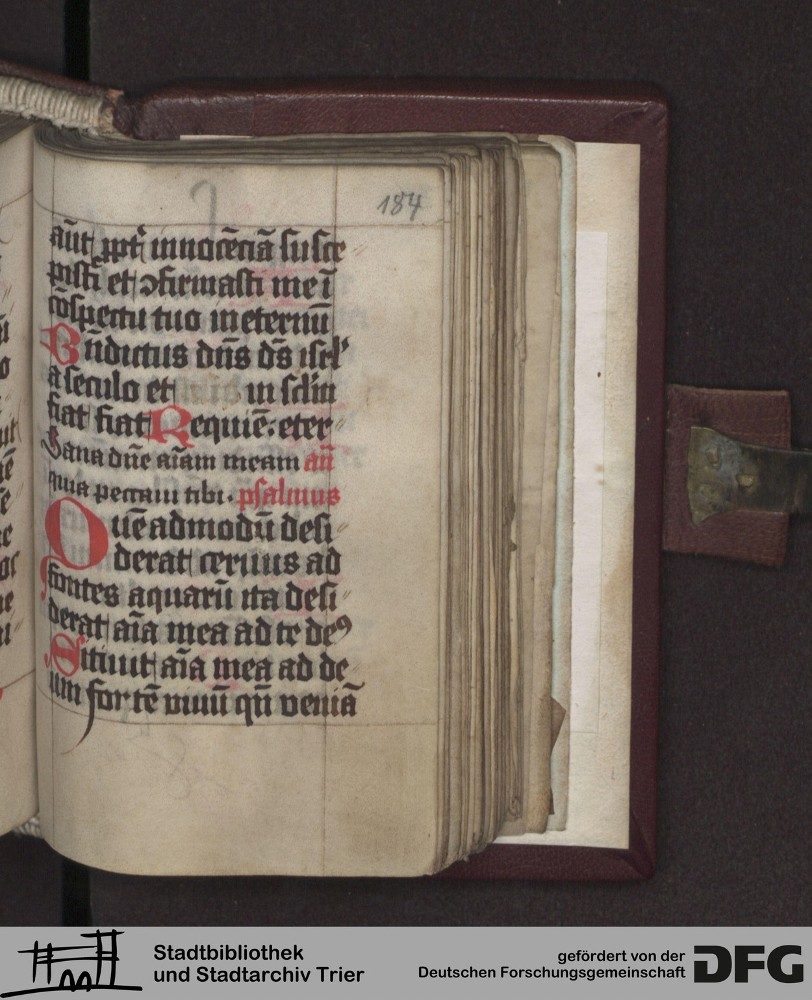 184
aūt ꝓpt̄ innocēciā susce
pisti et ↄfirmasti me ī
cōspectu tuo in eternū
Bn̄dictus dn̄s ds̄ isrl'
a seculo et in sclm̄
fiat fiat Requiē. eter
Sana dn̄e aīam meam an̄
quia peccaui tibi. psalmus
Quēadmodū desi
derat ceruus ad
fontes aquarū ita desi
derat aīa mea ad te deꝰ
Sitiuit aīa mea ad de
um fortē viuū qn̄ veniā
Stadtbibliothek
und Stadtarchiv Trier
gefördert von der
Deutschen Forschungsgemeinschaft
DFG